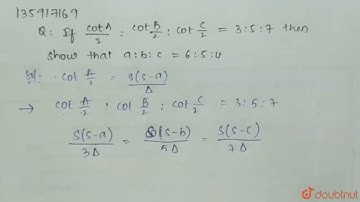 135917169
Q: If cot A/2 : cot B/2 : cot C/2 = 3:5:7 then
show that a:b:c = 6:5:4
Sol: cot A/2 = s(s-a)/Δ
→ cot A/2 : cot B/2 : cot C/2 = 3:5:7
s(s-a)/3Δ = s(s-b)/5Δ = s(s-c)/7Δ
doubtnut